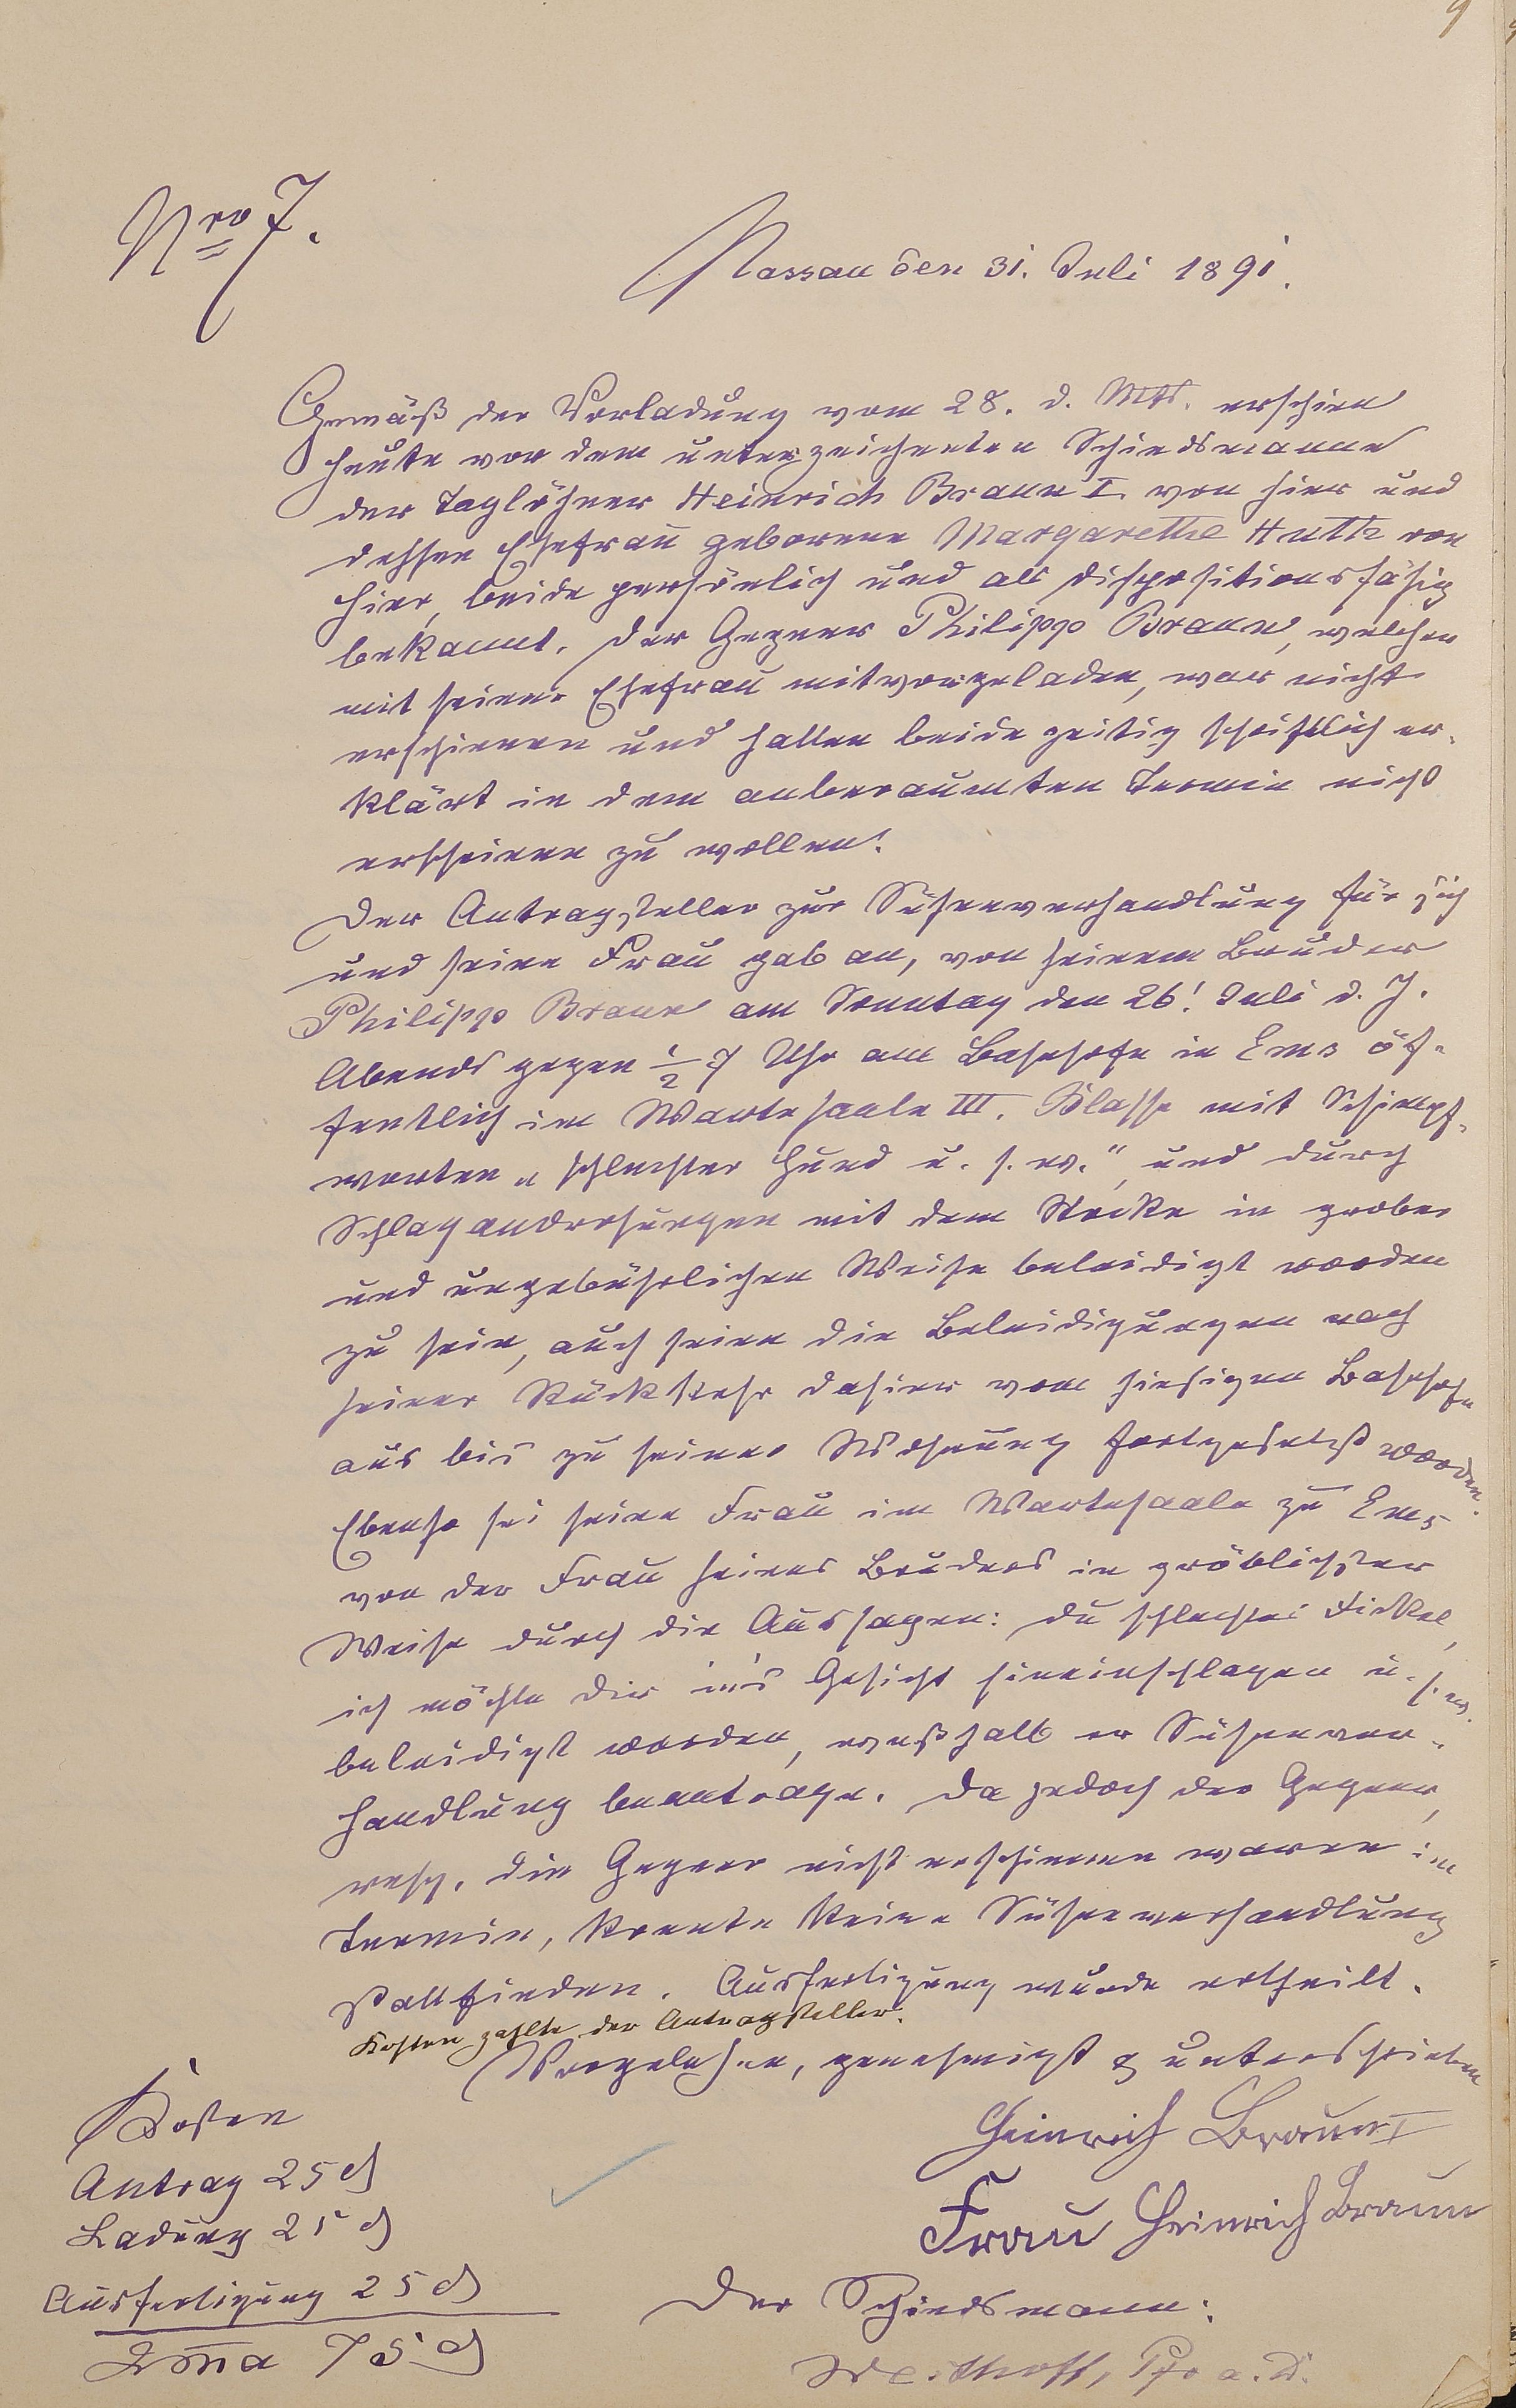 9
Nro 7.
Nassau den 31. Juli 1891.
Gemäß der Vorladung vom 28. d. Mts. erschien
heute vor dem unterzeichneten Schiedsmanne
der Taglöhner Heinrich Braun I. von hier und
dessen Ehefrau geborene Margarethe Huth von
hier, beide persönlich und als dispositionsfähig
bekannt. Der Gegner Philipp Braun, welcher
mit seiner Ehefrau mitvorgeladen, war nicht
erschienen und hatten beide zeitig schriftlich er-
klärt in dem anberaumten Termin nicht
erscheinen zu wollen.
Der Antragsteller zur Sühneverhandlung für sich
und seine Frau gab an, von seinem Bruder
Philipp Braun am Sonntag den 26. Juli d. J.
Abends gegen 1/2 7 Uhr am Bahnhofe in Ems öf-
fentlich im Wartesaale III. Klasse mit Schimpf-
worten „schlechter Hund u. s. w.", und durch
Schlagandrohungen mit dem Stocke in grober
und ungebührlichen Weise beleidigt worden
zu sein, auch seien die Beleidigungen nach
seiner Rückkehr dahier vom hiesigen Bahnhofe
aus bis zu seiner Wohnung fortgesetzt worden.
Ebenso sei seine Frau im Wartesaale zu Ems
von der Frau seines Bruders in gröblichster
Weise durch die Aussagen: du schlechtes Fickel,
ich möchte dir in's Gesicht hineinschlagen u. s. w.
beleidigt worden, weßhalb er Sühnever-
handlung beantrage. Da jedoch der Gegner,
resp. die Gegner nicht erschienen waren im
Termin, konnte keine Sühneverhandlung
stattfinden. Ausfertigung wurde ertheilt.
Kosten zahlte der Antragsteller.
Vorgelesen, genehmigt & unterschrieben
Heinrich Braun I
Frau Heinrich Braun
Der Schiedsmann:
Pfr a. D.
Kosten
Antrag 25 ₰
Ladung 25 ₰
Ausfertigung 25 ₰
Sma 75 ₰